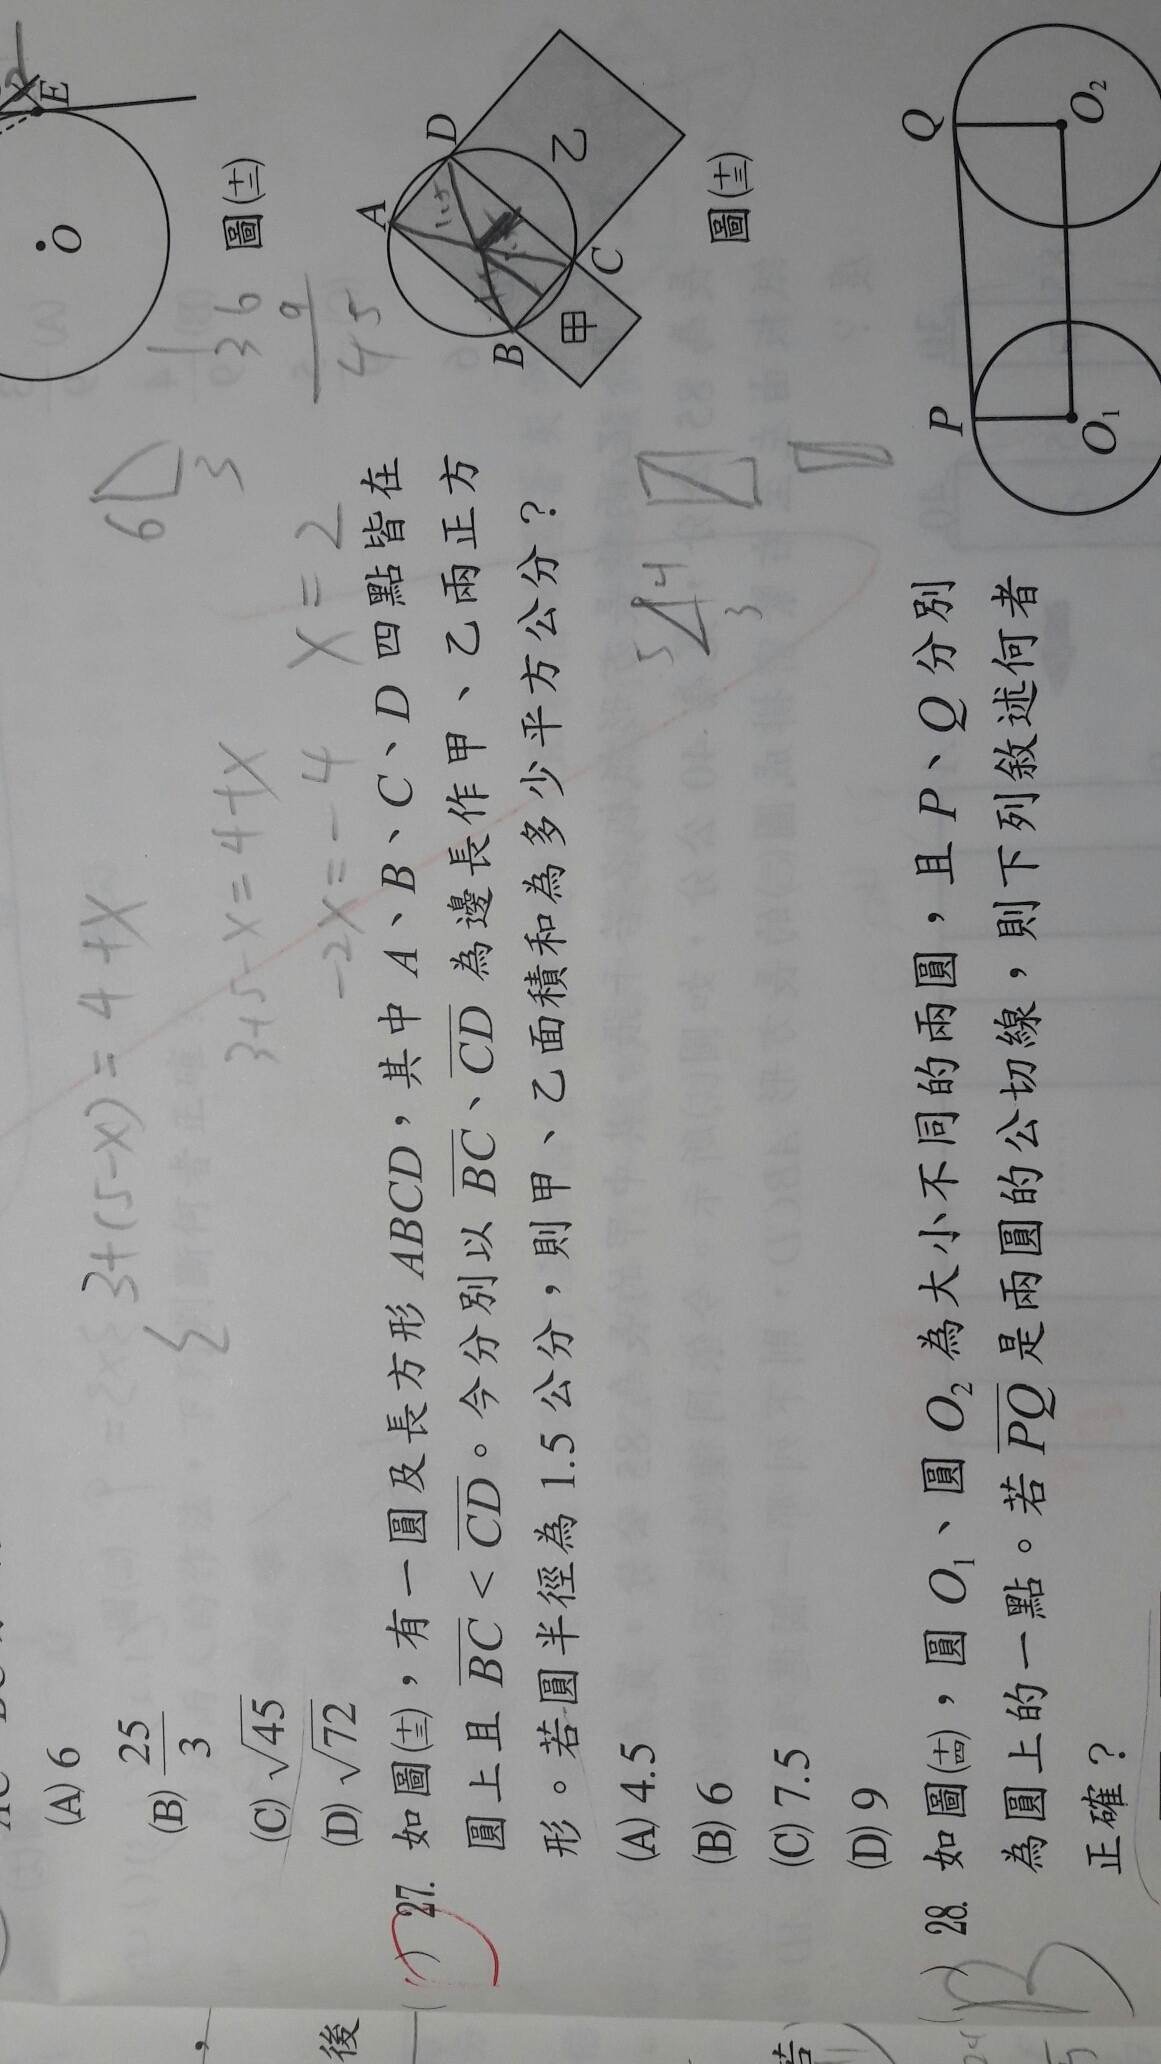 (A) 6
(B) 25/3
(C) √45
(D) √72
27. 如圖(十三),有一圓及長方形 ABCD,其中 A、B、C、D 四點皆在
圓上且 BC < CD。今分別以 BC、CD 為邊長作甲、乙兩正方
形。若圓半徑為 1.5 公分,則甲、乙面積和為多少平方公分?
(A) 4.5
(B) 6
(C) 7.5
(D) 9
28. 如圖(十四),圓 O₁、圓 O₂ 為大小不同的兩圓,且 P、Q 分別
為圓上的一點。若 PQ 是兩圓的公切線,則下列敘述何者
正確?
B
3+(5-x)=4+x
3+5-x=4+x
-2x=-4
x=2
6
3
3 6
9
4 5
5
4
3
O
E
圖(十二)
A
B
C
D
1.5
甲
乙
圖(十三)
P
Q
O₁
O₂
後